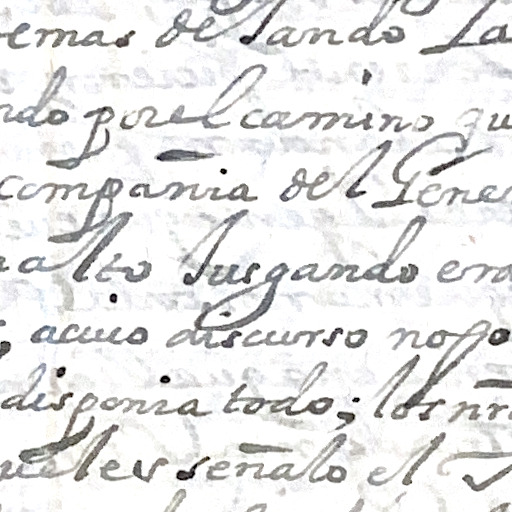 emas de Sando La
ndo por el camino qu
compañia del Gene
alto Jusgando era
; acuio discurso nopo
disponia todo; los nr̃
ueles señalo el